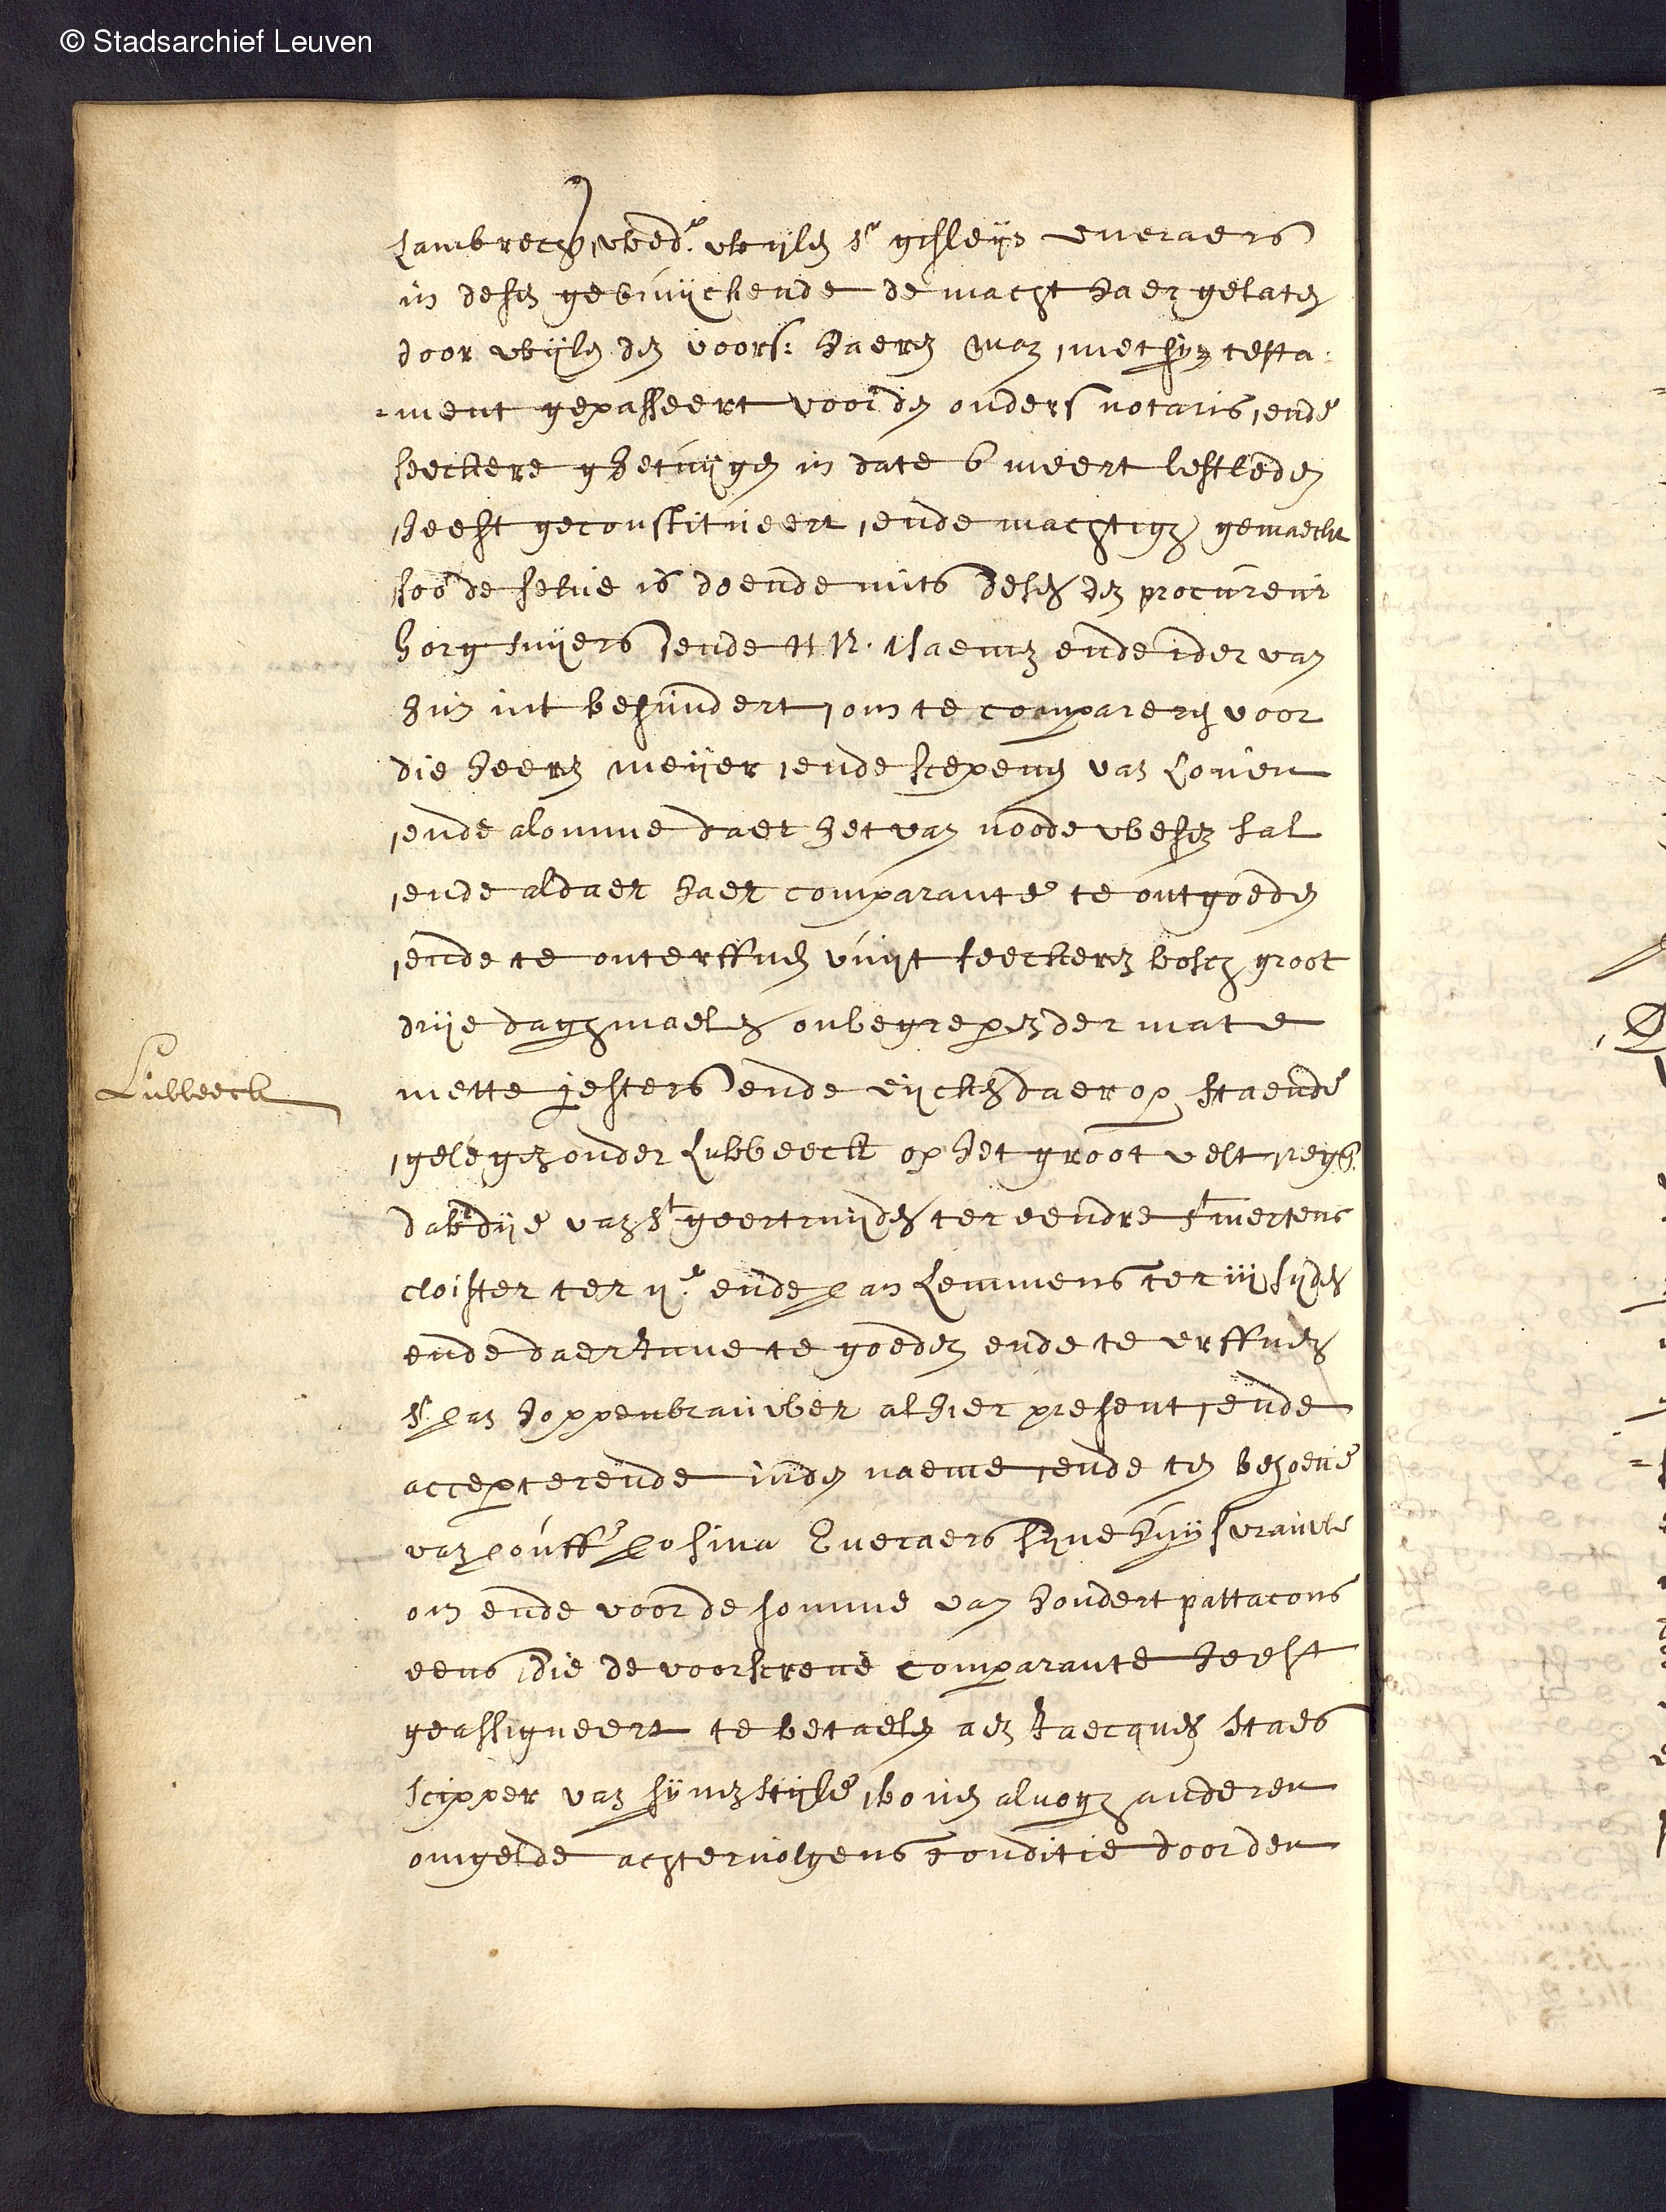 © Stadsarchief Leuven
Lambrechs, wed.e wylen Sr ghleyn Eueraers
in desen gebruyckende de macht haer gelaten
door wylen den voors: haeren man, met syn testa:
=ment gepasseert voor den onders notaris, ende
seeckere ghetuygen in date 6 meert lestleden
heeft geconstitueert, ende machtich gemaeckt
soo de selue is doende mits desen den procureur
ende N N. Naemen ende ider van
hun int besundert, om te compareren voor
die heeren meyer, ende scepenen van Louen
ende alomme daer het van noode wesen sal
ende aldaer haer comparante te ontgoeden
ende te onterffuen vuyt seeckeren bosch groot
drye daghmaelen onbegrepen der mate
Lubbeeck
mette jesters ende eycken daer op staende
gelegen onder Lubbeeck op het groot velt, regt.
dabdye van St geertruyden ter eendre St mertens
cloister ter ije ende Jan Lemmens ter iij syden
ende daer Inne te goeden ende te erffuen
Sr Jan hoppenbrauwer alhier present, ende
accepterende inden naeme ende ten behoeue
van Jouffe Josina Eueraers syne huysvrauwe
om ende voor de somme van hondert pattacons
eens die de voorscreue comparante heeft
geassigneert te betaelen aen Jaecques Staes
scipper van synen style, bouen alnoch anderen
omgelde achteruolgens conditie door den